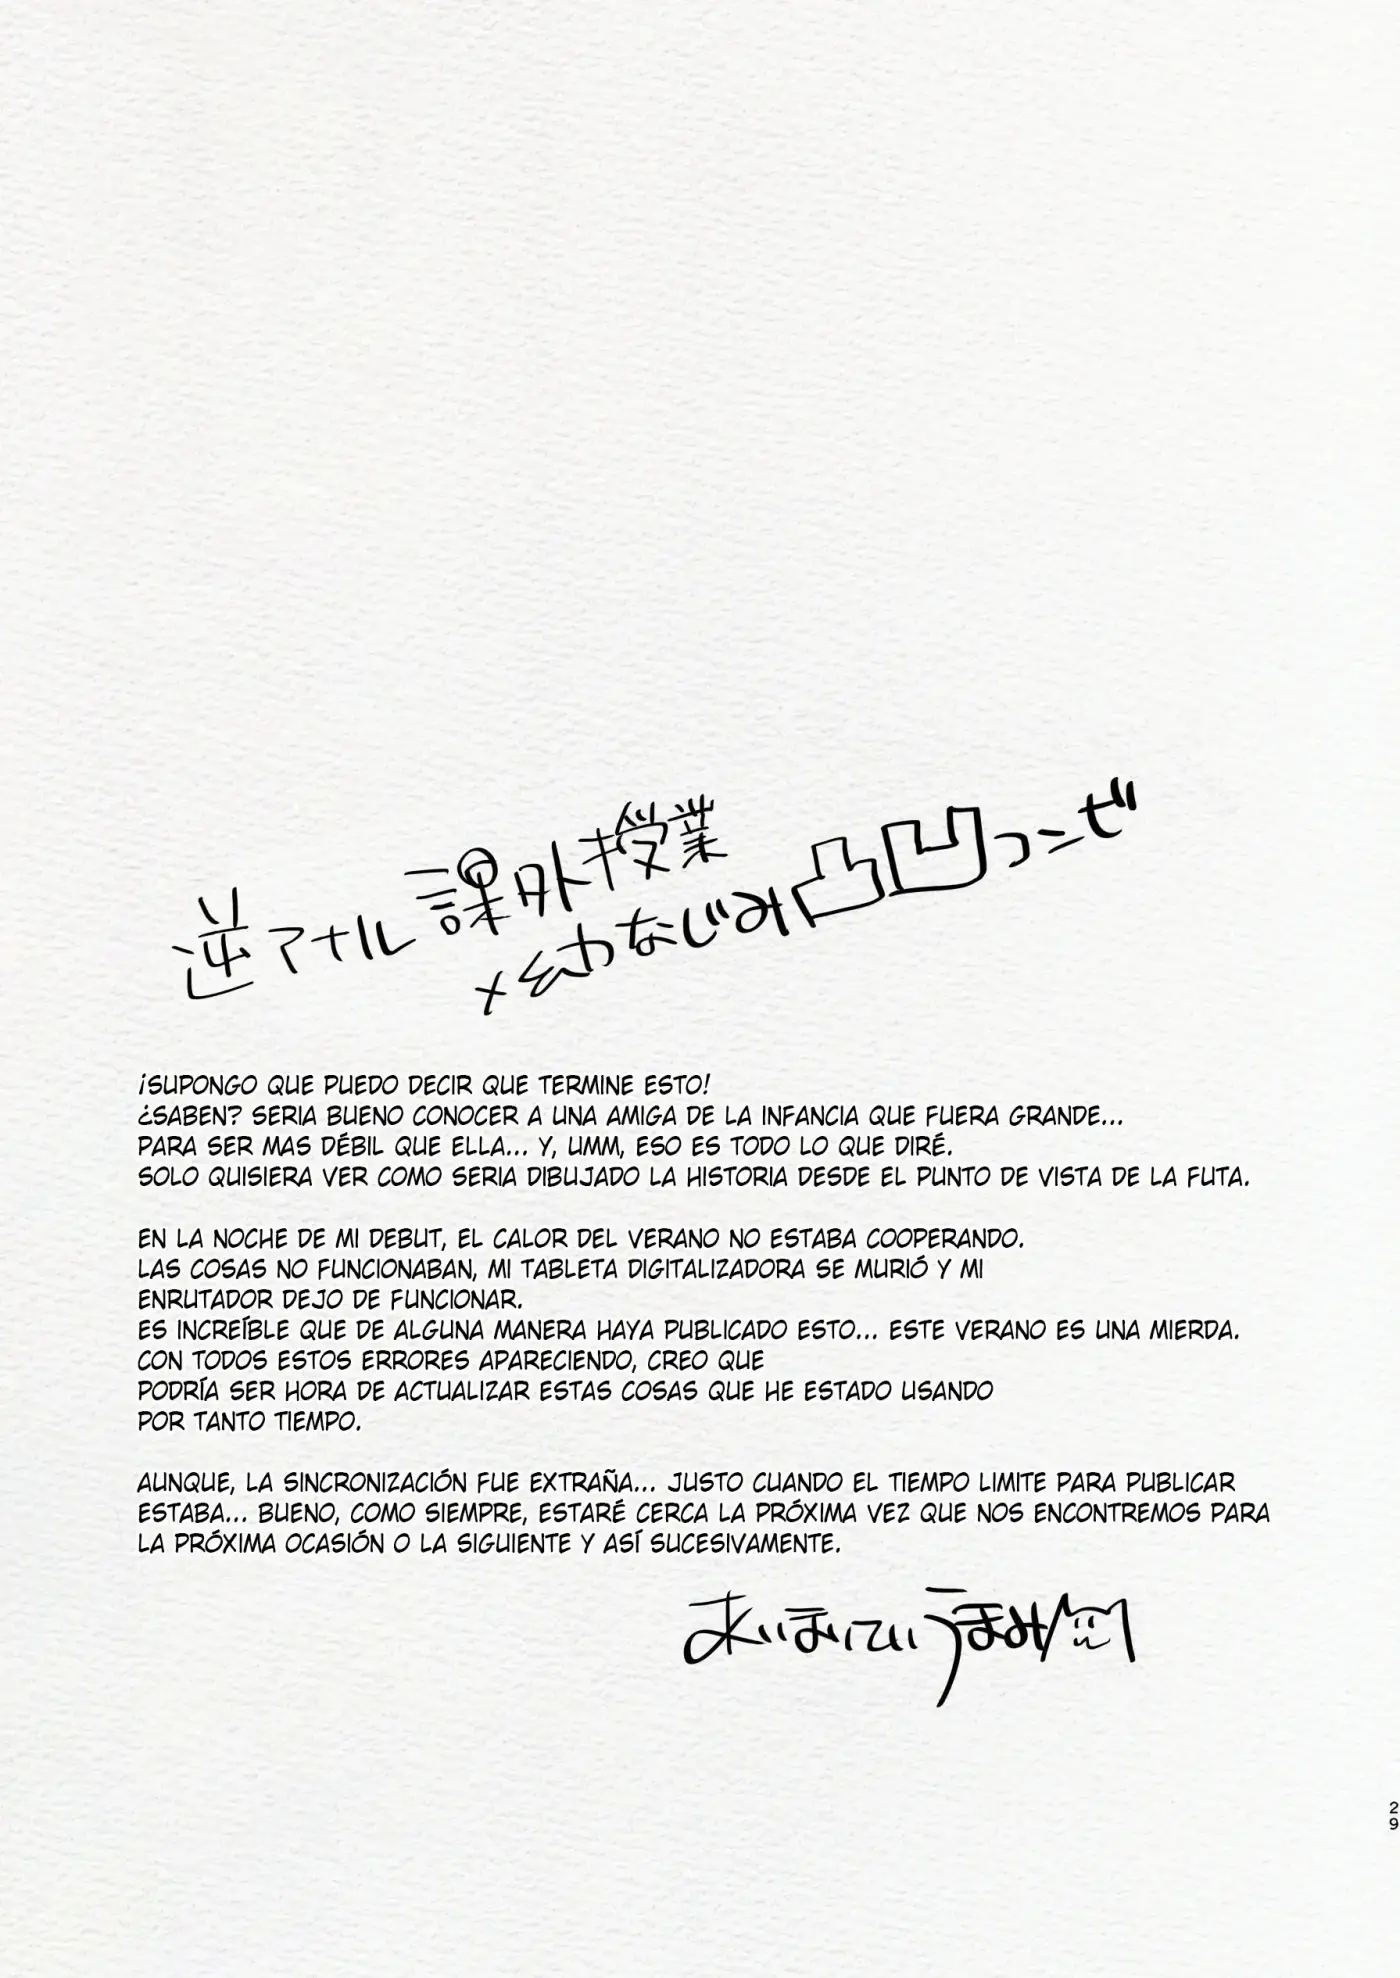 逆アナル課外授業
×幼なじみ凸凹コンビ
¡SUPONGO QUE PUEDO DECIR QUE TERMINE ESTO!
¿SABEN? SERIA BUENO CONOCER A UNA AMIGA DE LA INFANCIA QUE FUERA GRANDE...
PARA SER MAS DÉBIL QUE ELLA... Y, UMM, ESO ES TODO LO QUE DIRÉ.
SOLO QUISIERA VER COMO SERIA DIBUJADO LA HISTORIA DESDE EL PUNTO DE VISTA DE LA FUTA.
EN LA NOCHE DE MI DEBUT, EL CALOR DEL VERANO NO ESTABA COOPERANDO.
LAS COSAS NO FUNCIONABAN, MI TABLETA DIGITALIZADORA SE MURIÓ Y MI
ENRUTADOR DEJO DE FUNCIONAR.
ES INCREÍBLE QUE DE ALGUNA MANERA HAYA PUBLICADO ESTO... ESTE VERANO ES UNA MIERDA.
CON TODOS ESTOS ERRORES APARECIENDO, CREO QUE
PODRÍA SER HORA DE ACTUALIZAR ESTAS COSAS QUE HE ESTADO USANDO
POR TANTO TIEMPO.
AUNQUE, LA SINCRONIZACIÓN FUE EXTRAÑA... JUSTO CUANDO EL TIEMPO LIMITE PARA PUBLICAR
ESTABA... BUENO, COMO SIEMPRE, ESTARÉ CERCA LA PRÓXIMA VEZ QUE NOS ENCONTREMOS PARA
LA PRÓXIMA OCASIÓN O LA SIGUIENTE Y ASÍ SUCESIVAMENTE.
29